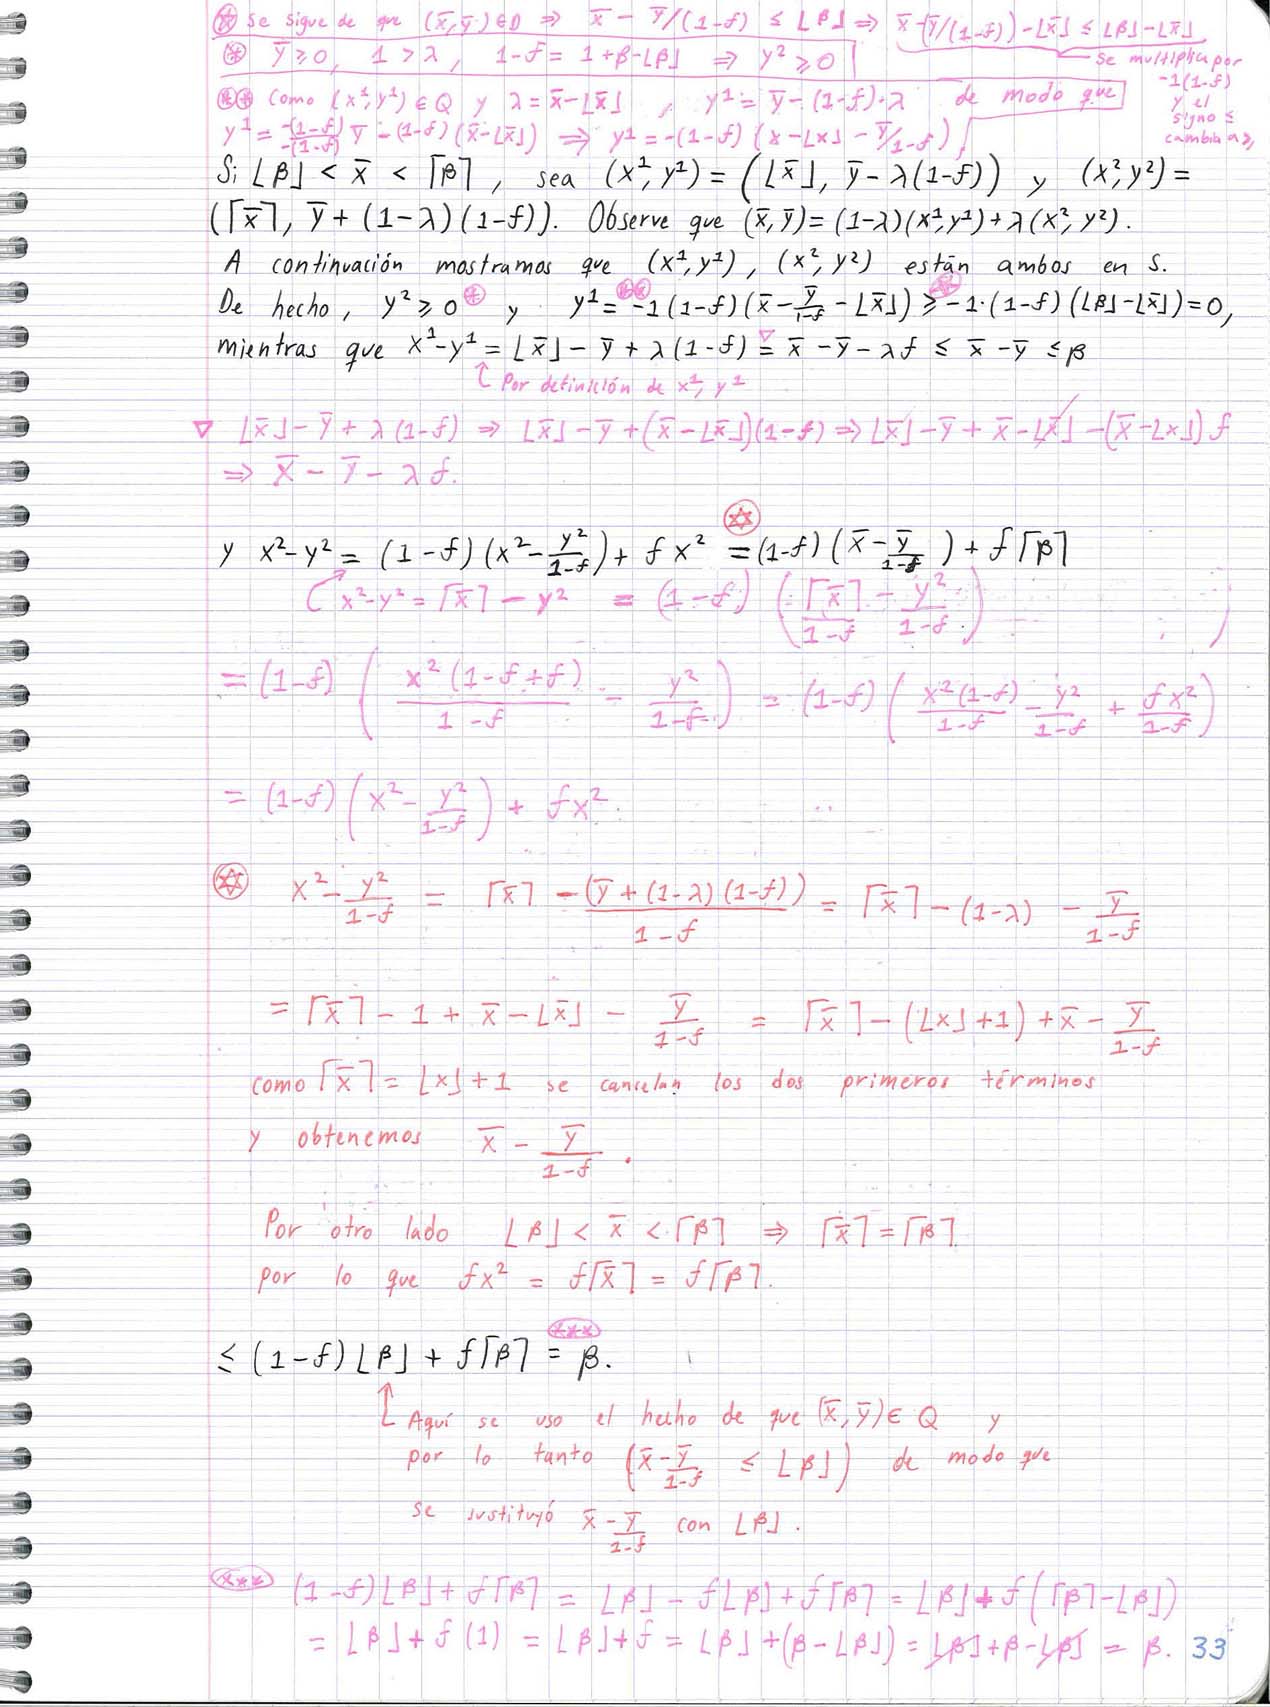 ✡ Se sigue de que (x̄, ȳ) ∈ D ⇒ x̄ - ȳ/(1-f) ≤ ⌊β⌋ ⇒ x̄ - (ȳ/(1-f)) - ⌊x̄⌋ ≤ ⌊β⌋ - ⌊x̄⌋
Se multiplica por
-1(1-f)
y el
signo ≤
cambia a ≥,
⊛ ȳ ≥ 0, 1 > λ, 1-f = 1+β-⌊β⌋ ⇒ y² ≥ 0
⊛⊛ como (x¹, y¹) ∈ Q y λ = x̄ - ⌊x̄⌋, y¹ = ȳ - (1-f)·λ de modo que
y¹ = -(1-f)/-(1-f) ȳ - (1-f)(x̄ - ⌊x̄⌋) ⇒ y¹ = -(1-f)(x - ⌊x⌋ - ȳ/1-f)
Si ⌊β⌋ < x̄ < ⌈β⌉, sea (x¹, y¹) = (⌊x̄⌋, ȳ - λ(1-f)) y (x², y²) =
(⌈x̄⌉, ȳ + (1-λ)(1-f)). Observe que (x̄, ȳ) = (1-λ)(x¹, y¹) + λ(x², y²).
A continuación mostramos que (x¹, y¹), (x², y²) están ambos en S.
De hecho, y² ≥ 0 ⊛ y y¹ =⊛⊛ -1(1-f)(x̄ - ȳ/1-f - ⌊x̄⌋) ≥✡ -1·(1-f)(⌊β⌋ - ⌊x̄⌋) = 0,
mientras que x¹ - y¹ = ⌊x̄⌋ - ȳ + λ(1-f) =▽ x̄ - ȳ - λf ≤ x̄ - ȳ ≤ β
↑ Por definición de x¹, y¹
▽ ⌊x̄⌋ - ȳ + λ(1-f) ⇒ ⌊x̄⌋ - ȳ + (x̄ - ⌊x̄⌋)(1-f) ⇒ ⌊x̄⌋ - ȳ + x̄ - ⌊x̄⌋ - (x̄ - ⌊x⌋)f
⇒ x̄ - ȳ - λf.
y x² - y² = (1-f)(x² - y²/1-f) + fx² =✡ (1-f)(x̄ - ȳ/1-f) + f⌈β⌉
x² - y² = ⌈x̄⌉ - y² = (1-f)(⌈x̄⌉/1-f - y²/1-f)
= (1-f)(x²(1-f+f)/1-f - y²/1-f) = (1-f)(x²(1-f)/1-f - y²/1-f + fx²/1-f)
= (1-f)(x² - y²/1-f) + fx².
✡ x² - y²/1-f = ⌈x̄⌉ - (ȳ + (1-λ)(1-f))/1-f = ⌈x̄⌉ - (1-λ) - ȳ/1-f
= ⌈x̄⌉ - 1 + x̄ - ⌊x̄⌋ - ȳ/1-f = ⌈x̄⌉ - (⌊x⌋+1) + x̄ - ȳ/1-f
como ⌈x̄⌉ = ⌊x⌋ + 1 se cancelan los dos primeros términos
y obtenemos x̄ - ȳ/1-f.
Por otro lado ⌊β⌋ < x̄ < ⌈β⌉ ⇒ ⌈x̄⌉ = ⌈β⌉
por lo que fx² = f⌈x̄⌉ = f⌈β⌉.
≤ (1-f)⌊β⌋ + f⌈β⌉ =*** β.
↑ Aquí se uso el hecho de que (x̄, ȳ) ∈ Q y
por lo tanto (x̄ - ȳ/1-f ≤ ⌊β⌋) de modo que
se sustituyó x̄ - ȳ/1-f con ⌊β⌋.
*** (1-f)⌊β⌋ + f⌈β⌉ = ⌊β⌋ - f⌊β⌋ + f⌈β⌉ = ⌊β⌋ + f(⌈β⌉ - ⌊β⌋)
= ⌊β⌋ + f(1) = ⌊β⌋ + f = ⌊β⌋ + (β - ⌊β⌋) = ⌊β⌋ + β - ⌊β⌋ = β. 33